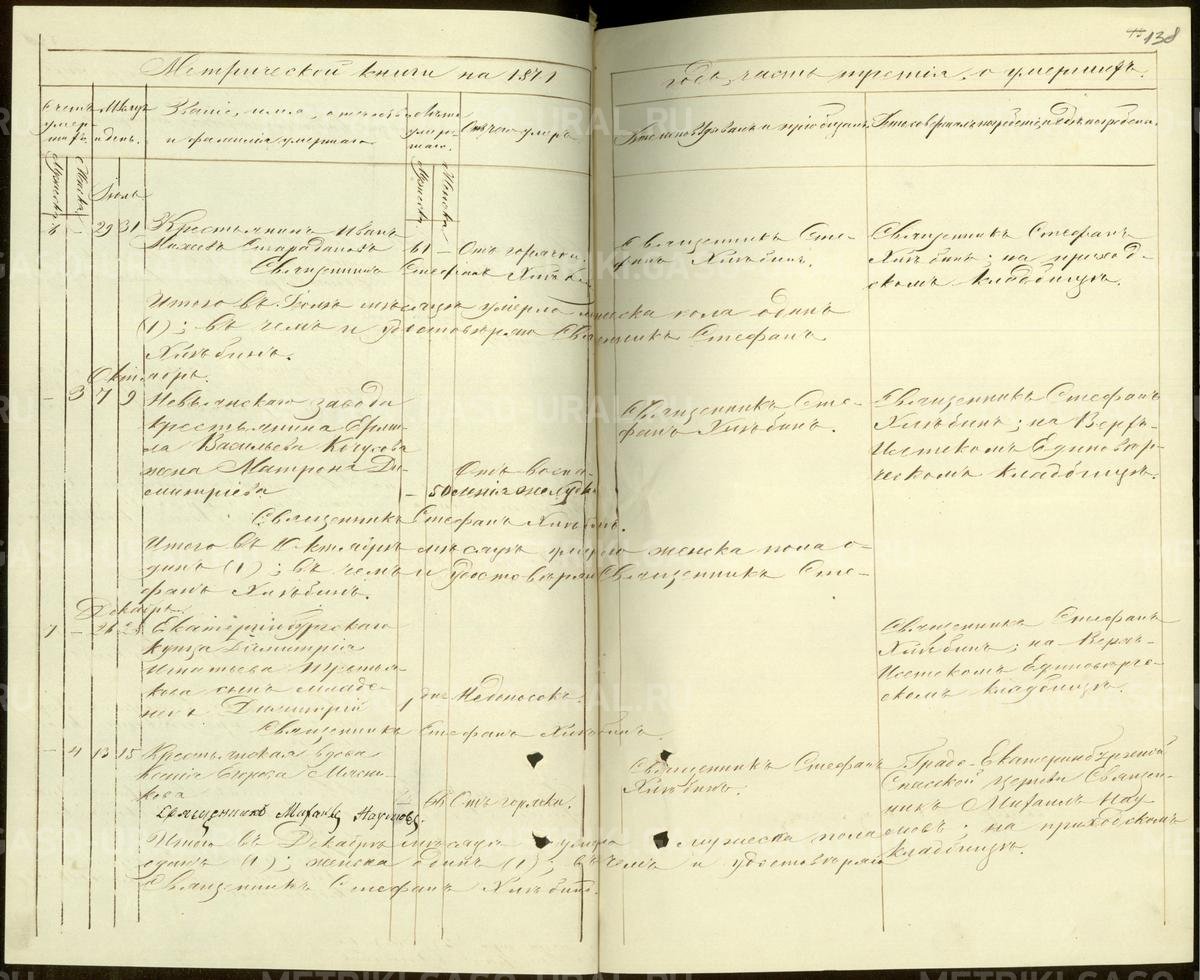 138
Метрической книги на 1871
годъ, часть третія, о умершихъ.
Счетъ умер-
шихъ.
Мѣсяцъ
и день.
Званіе, имя, отчество
и фамилія умершаго
Лѣта
умер-
шаго.
Отъ чего умеръ
Кто исповѣдывалъ и пріобщалъ.
Кто совершалъ погребеніе и гдѣ погребены.
Мужеска
Женска
Мужеска
Женска
Іюль
6 - 29 31 Крестьянинъ Иванъ
61 - Отъ горячки.
Священникъ Стефанъ Хлѣбинъ
Священникъ Сте-
фанъ Хлѣбинъ.
Священникъ Стефанъ
Хлѣбинъ; на приход-
скомъ кладбищѣ.
Итого въ Іюлѣ мѣсяцѣ умерло мужеска пола одинъ
(1); въ чемъ и удостовѣряю Священникъ Стефанъ
Хлѣбинъ.
Октябрь.
- 3 7 9 Невьянскаго завода
крестьянина Ерми-
ла Васильева
жена Матрона Ди-
митріева
- 50
Отъ воспа-
ленія желудка
Священникъ Стефанъ Хлѣбинъ.
Священникъ Сте-
фанъ Хлѣбинъ.
Священникъ Стефанъ
Хлѣбинъ; на Верхъ-
Истскомъ Единовѣр-
ческомъ кладбищѣ.
Итого въ Октябрѣ мѣсяцѣ умерло женска пола о-
динъ (1); въ чемъ и удостовѣряю Священникъ Сте-
фанъ Хлѣбинъ.
Декабрь.
7 - 26 28 Екатеринбургскаго
купца Димитрія
Игнатьева Третья-
кова сынъ младе-
нецъ Димитрій
1 дня Недоносокъ.
Священникъ Стефанъ Хлѣбинъ.
Священникъ Стефанъ
Хлѣбинъ; на Верхъ-
Истскомъ Единовѣрче-
скомъ кладбищѣ.
- 4 13 15 Крестьянская вдова
Ксенія Егорова Мясни-
кова
- 66 Отъ горячки.
Священникъ Михаилъ Наумовъ.
Священникъ Стефанъ
Хлѣбинъ.
Градо-Екатеринбургской
Спасской церкви Священ-
никъ Михаилъ Нау-
мовъ; на приходскомъ
кладбищѣ.
Итого въ Декабрѣ мѣсяцѣ умерло мужеска пола
одинъ (1); женска одинъ (1); въ чемъ и удостовѣряю
Священникъ Стефанъ Хлѣбинъ.
METRIKI.GASO-URAL.RU